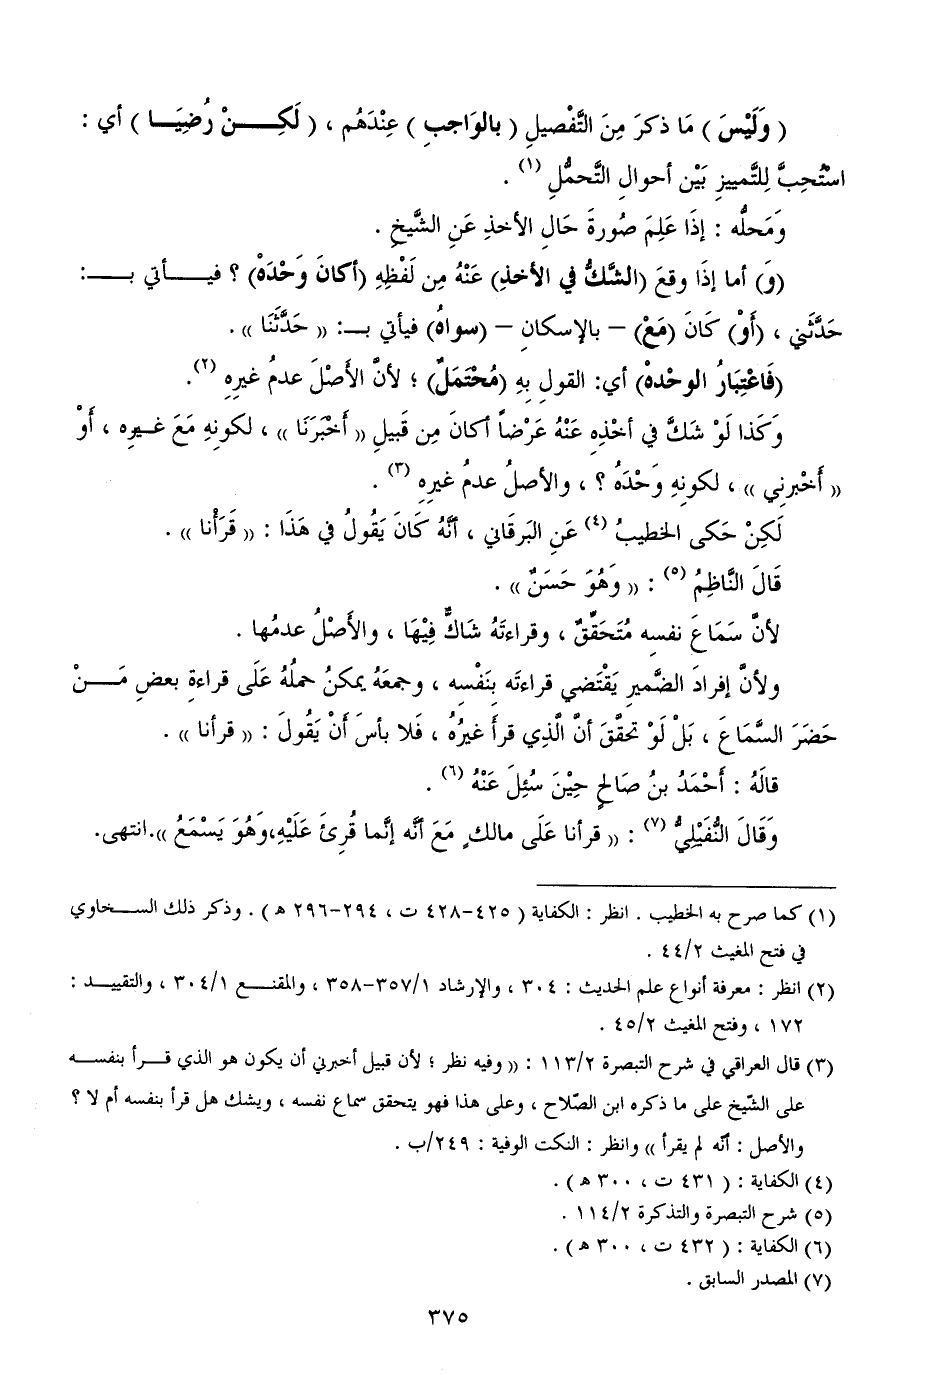 ( وَلَيْسَ ) مَا ذكرَ مِنَ التَّفْصيلِ ( بالوَاجبِ ) عِنْدَهُم ، ( لَكِـــنْ رُضِيَــا ) أي :
استُحِبَّ لِلتَّمييزِ بَيْن أحوالِ التَّحمُّلِ (١) .
وَمَحلُّه : إذَا عَلِمَ صُورةَ حَال الأخذِ عَنِ الشَّيخِ .
(وَ) أما إذَا وقعَ (الشَّكُّ في الأخذِ) عَنْهُ مِن لَفْظِهِ (أكانَ وَحْدَهْ) ؟ فيــأتي بــ:
حَدَّثَني ، (أَوْ) كَانَ (مَعْ) – بالإسكانِ – (سواهُ) فيأتي بـ: (( حَدَّثَنَا )) .
(فَاعْتِبَارُ الوحْدهْ) أي: القول بهِ (مُحْتَمَلٌ) ؛ لأنَّ الأَصْلَ عدمُ غيرِهِ (٢).
وَكَذا لَوْ شَكَّ في أخْذِهِ عَنْهُ عَرْضاً أكانَ مِن قَبيلِ (( أَخْبَرَنَا )) ، لكونهِ مَعَ غـيرِه ، أَوْ
(( أَخْبرني )) ، لكونهِ وَحْدَهُ ؟ ، والأصلُ عدمُ غيرِهِ (٣) .
لَكِنْ حَكى الخطيبُ (٤) عَنِ البَرقَاني ، أنَّهُ كَانَ يَقُولُ في هَذَا : (( قَرَأْنا )) .
قَالَ النَّاظِمُ (٥) : (( وَهُوَ حَسَنٌ )) .
لأنَّ سَمَاعَ نفسِه مُتَحَقِّقٌ ، وقراءتَهُ شَاكٌّ فِيْهَا ، والأَصْلُ عدمُها .
ولأنَّ إفرادَ الضَّميرِ يَقْتَضي قراءتَه بنَفْسِه ، وجمعَهُ يمكنُ حملُهُ عَلَى قراءةِ بعضِ مَــنْ
حَضَرَ السَّمَاعَ ، بَلْ لَوْ تحقَّقَ أنَّ الَّذِي قرأَ غيرُهُ ، فَلا بأسَ أَنْ يَقُولَ : (( قرأنا )) .
قالَهُ : أَحْمَدُ بنُ صَالحٍ حِيْنَ سُئِلَ عَنْهُ (٦) .
وَقَالَ النُّفَيْليُّ (٧) : (( قرأنا عَلَى مالكٍ مَعَ أنَّه إنَّما قُرِئَ عَلَيْهِ،وَهُوَ يَسْمَعُ )).انتهى.
(١) كما صرح به الخطيب . انظر : الكفاية ( ٤٢٥-٤٢٨ ت ، ٢٩٤-٢٩٦ هـ ) . وذكر ذلك السـخاوي
في فتح المغيث ٤٤/٢ .
(٢) انظر : معرفة أنواع علم الحديث : ٣٠٤ ، والإرشاد ٣٥٧/١-٣٥٨ ، والمقنــع ٣٠٤/١ ، والتقييــد :
١٧٢ ، وفتح المغيث ٤٥/٢ .
(٣) قال العراقي في شرح التبصرة ١١٣/٢ : (( وفيه نظر ؛ لأن قبيل أخبرني أن يكون هو الذي قــرأ بنفســه
على الشّيخ على ما ذكره ابن الصّلاح ، وعلى هذا فهو يتحقق سماع نفسه ، ويشك هل قرأ بنفسه أم لا ؟
والأصل : أنّه لم يقرأ )) وانظر : النكت الوفية : ٢٤٩/ب .
(٤) الكفاية : ( ٤٣١ ت ، ٣٠٠ هـ ) .
(٥) شرح التبصرة والتذكرة ١١٤/٢ .
(٦) الكفاية : ( ٤٣٢ ت ، ٣٠٠ هـ ) .
(٧) المصدر السابق .
٣٧٥